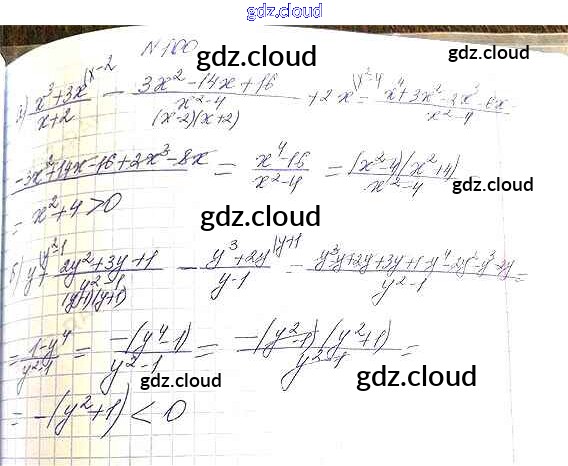 gdz.cloud
№ 100
gdz.cloud
gdz.cloud
а) (x³+3x)/(x+2) |x-2 - (3x²-14x+16)/(x²-4) + 2x |x²-4 = (x⁴+3x²-2x³-6x
(x-2)(x+2)
x²-4
gdz.cloud
-3x²+14x-16+2x³-8x = (x⁴-16)/(x²-4) = (x²-4)(x²+4)/(x²-4) =
= x²+4>0
gdz.cloud
gdz.cloud
б) y |y²-1 + (2y²+3y+1)/(y²-1) - (y³+2y)/(y-1) |y+1 = (y³-y+2y²+3y+1-y⁴-2y²-y³-2y)/(y²-1) =
= (1-y⁴)/(y²-1) = -(y⁴-1)/(y²-1) = -(y²-1)(y²+1)/(y²-1) =
gdz.cloud
gdz.cloud
= -(y²+1) < 0
gdz.cloud
gdz.cloud